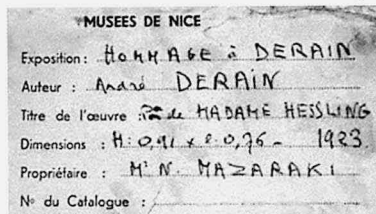 MUSEES DE NICE
Exposition: HOMMAGE à DERAIN
Auteur : André DERAIN
Titre de l'œuvre : de MADAME HESSLING
Dimensions : H: 0,91 x l. 0,76 - 1923
Propriétaire : Mr N. MAZARAKI
No du Catalogue :